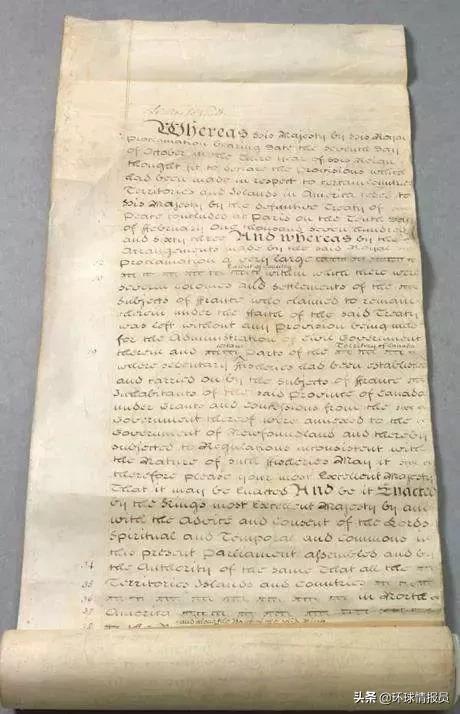 Whereas His Majesty by His Royal
Proclamation bearing Date the Seventh Day
of October in the Third Year of His Reign
thought fit to declare the Provisions which
had been made in respect to certain Countries
Territories and Islands in America ceded to
His Majesty by the definitive Treaty of
Peace concluded at Paris on the Tenth Day
of February One thousand seven hundred
and sixty three And whereas by the
Arrangements made by the said Royal
Proclamation a very large
Extent of Country
within which there were
several Colonies and Settlements of the
Subjects of France who claimed to remain
therein under the Faith of the said Treaty
was left without any Provision being made
for the Administration of Civil Government
certain Territory of Canada
therein and Parts of the
where sedentary Fisheries had been established
and carried on by the Subjects of France
Inhabitants of the said Province of Canada
under Grants and Concessions from the
Government thereof were annexed to the
Government of Newfoundland and thereby
subjected to Regulations inconsistent with
the Nature of such Fisheries May it
therefore please Your most Excellent Majesty
That it may be Enacted And be it Enacted
by the Kings most Excellent Majesty by and
with the Advice and Consent of the Lords
Spiritual and Temporal and Commons in
this present Parliament assembled and by
34 the Authority of the same That all the
35 Territories Islands and Countries
36 in North
37 America
头条 @环球情报员